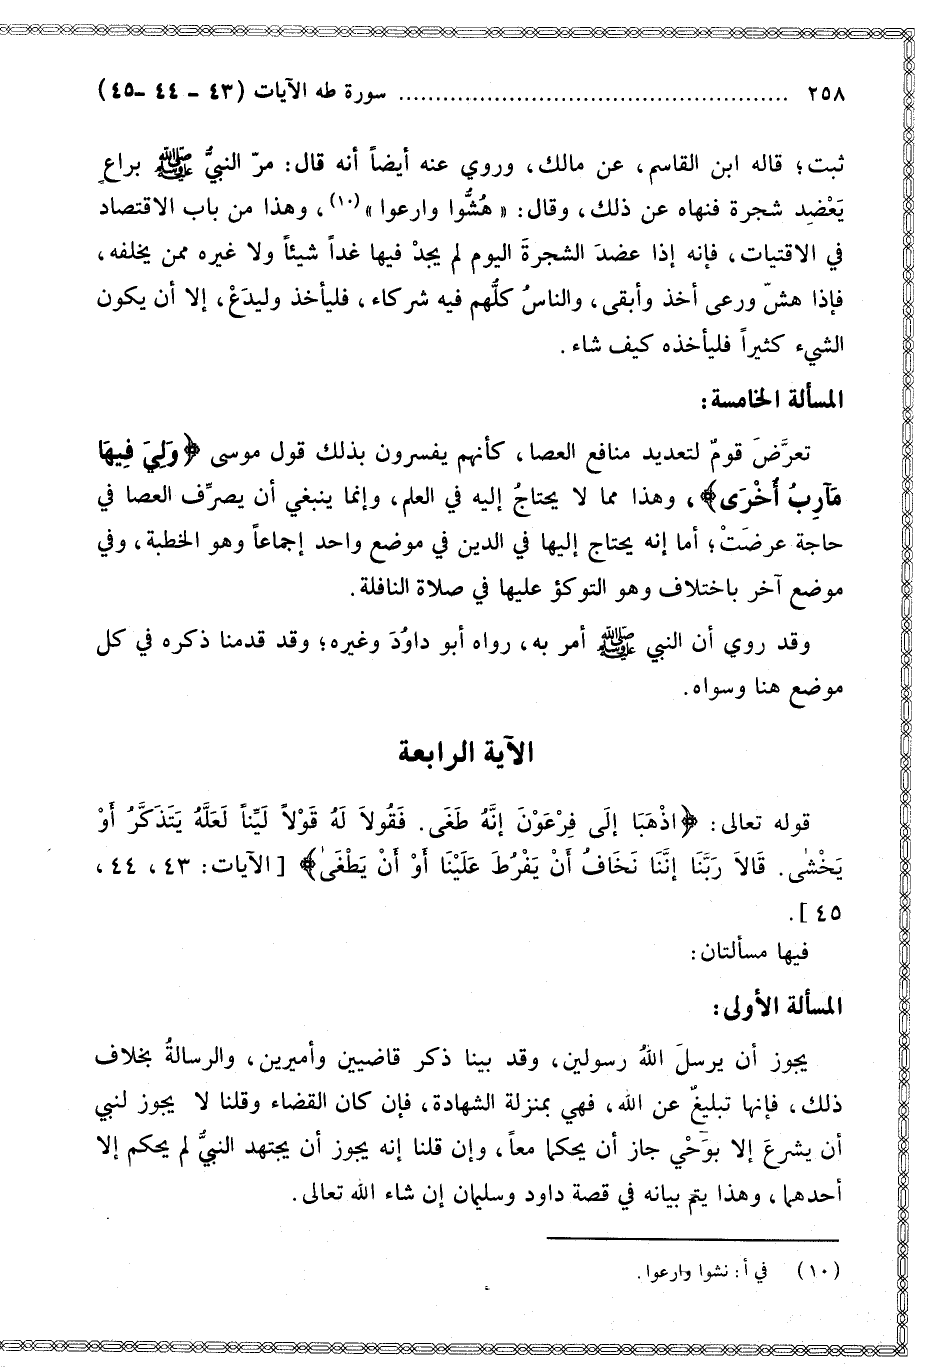 ٢٥٨ ..................................................... سورة طه الآيات (٤٣ - ٤٤ -٤٥)
ثبت؛ قاله ابن القاسم، عن مالك، وروي عنه أيضاً أنه قال: مرّ النبيُّ ﷺ براعٍ
يَعْضِد شجرة فنهاه عن ذلك، وقال: «هُشُّوا وارعوا»(١٠)، وهذا من باب الاقتصاد
في الاقتيات، فإنه إذا عضدَ الشجرةَ اليوم لم يجدْ فيها غداً شيئاً ولا غيره ممن يخلفه،
فإذا هشّ ورعى أخذ وأبقى، والناسُ كلُّهم فيه شركاء، فليأخذ وليدَعْ، إلا أن يكون
الشيء كثيراً فليأخذه كيف شاء.
المسألة الخامسة:
تعرَّضَ قومٌ لتعديد منافع العصا، كأنهم يفسرون بذلك قول موسى ﴿وَلِيَ فِيهَا
مَآرِبُ أُخْرَى﴾، وهذا مما لا يحتاجُ إليه في العلم، وإنما ينبغي أن يصرِّف العصا في
حاجة عرضَتْ؛ أما إنه يحتاج إليها في الدين في موضع واحد إجماعاً وهو الخطبة، وفي
موضع آخر باختلاف وهو التوكؤ عليها في صلاة النافلة.
وقد روي أن النبي ﷺ أمر به، رواه أبو داوُدَ وغيره؛ وقد قدمنا ذكره في كل
موضع هنا وسواه.
الآية الرابعة
قوله تعالى: ﴿اذْهَبَا إِلَى فِرْعَوْنَ إِنَّهُ طَغَى. فَقُولاَ لَهُ قَوْلاً لَيِّناً لَعَلَّهُ يَتَذَكَّرُ أَوْ
يَخْشٰى. قَالاَ رَبَّنَا إِنَّنَا نَخَافُ أَنْ يَفْرُطَ عَلَيْنَا أَوْ أَنْ يَطْغَىٰ﴾ [الآيات: ٤٣، ٤٤،
٤٥].
فيها مسألتان:
المسألة الأولى:
يجوز أن يرسلَ اللهُ رسولين، وقد بينا ذكر قاضيين وأميرين، والرسالةُ بخلاف
ذلك، فإنها تبليغٌ عن الله، فهي بمنزلة الشهادة، فإن كان القضاء وقلنا لا يجوز لنبي
أن يشرعَ إلا بوَحْي جاز أن يحكما معاً، وإن قلنا إنه يجوز أن يجتهد النبيُّ لم يحكم إلا
أحدهما، وهذا يتم بيانه في قصة داود وسليمان إن شاء الله تعالى.
(١٠) في أ: نشوا وارعوا.